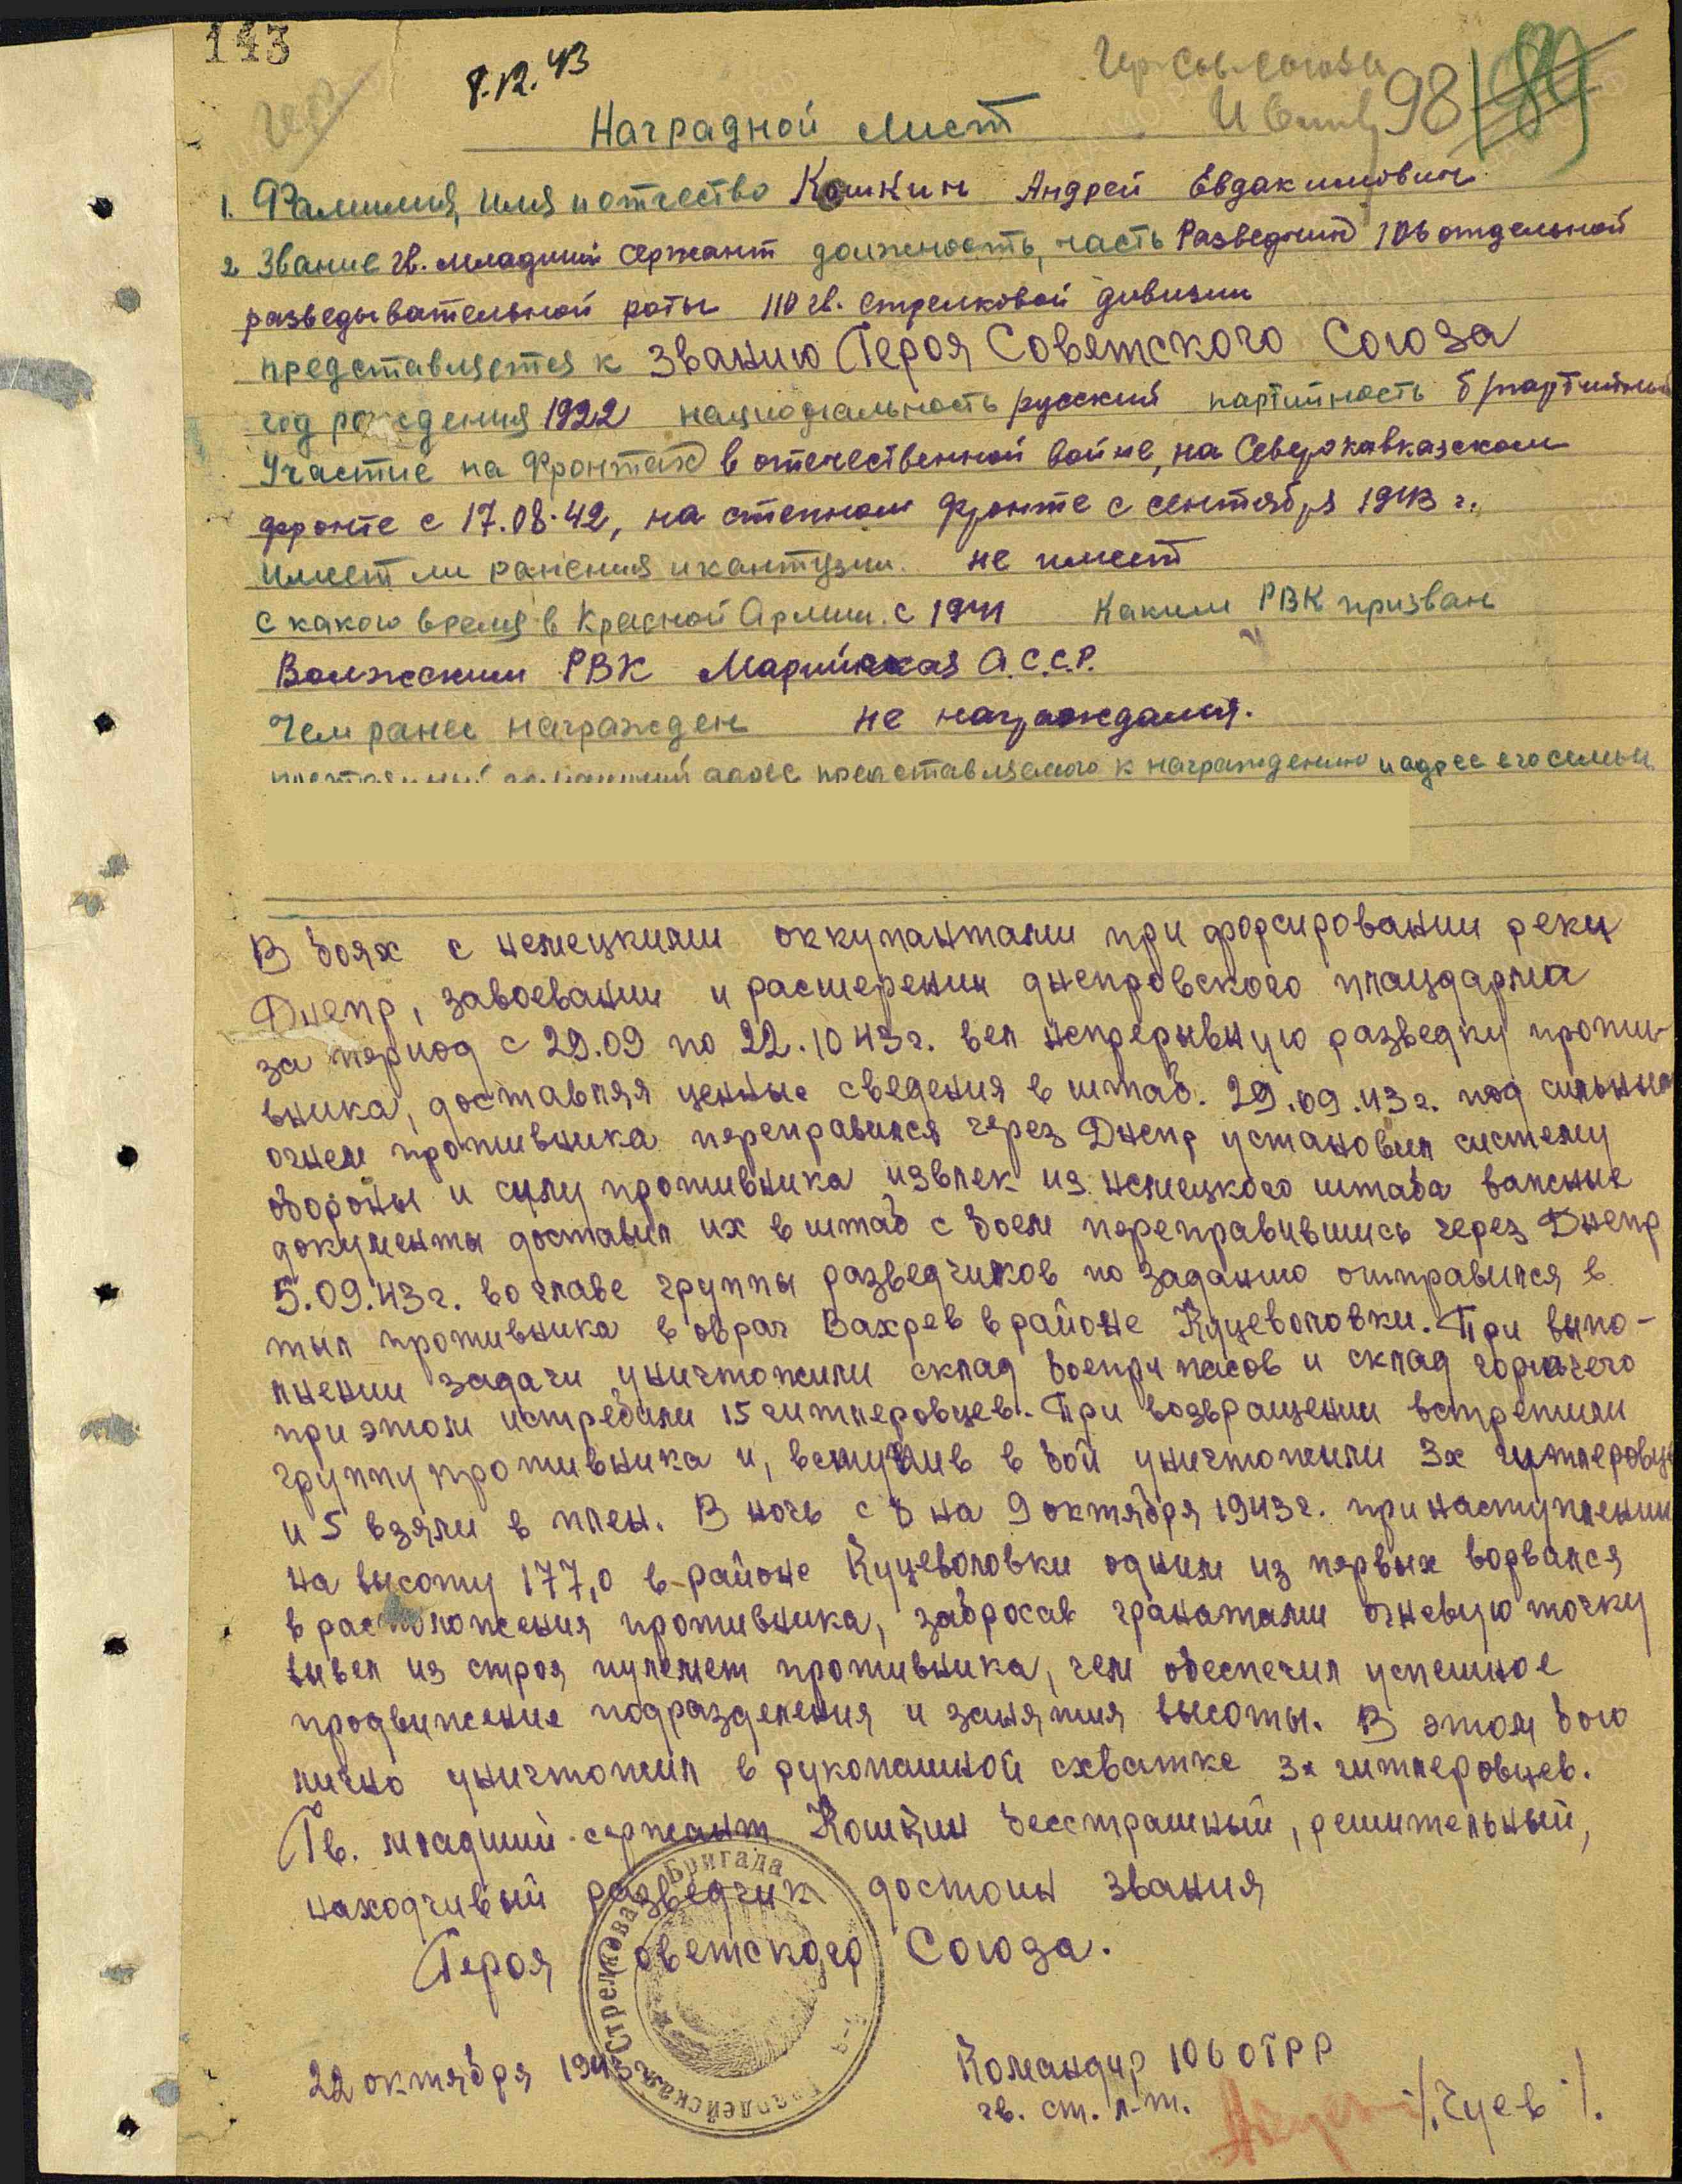 143
8.12.43
Гер. Сов. Союза
98
189
Наградной лист
1. Фамилия, имя и отчество Кошкин Андрей Евдакимович
2 Звание гв. младший сержант должность, часть Разведчик 106 отдельной
разведывательной роты 110 гв. стрелковой дивизии
представляется к званию Героя Советского Союза
год рождения 1922 национальность русский партийность б/партийный
Участие на фронтах в отечественной войне, на Северокавказском
фронте с 17.08.42, на степном фронте с сентября 1943 г.
Имеет ли ранения и кантузии. не имеет
С какого время в Красной Армии. с 1941 Каким РВК призван
Волжским РВК Марийская А.С.С.Р.
Чем ранее награжден не награждался.
представляемого к награждению и адрес его семьи
В боях с немецкими оккупантами при форсировании реки
Днепр, завоевании и расшерении днепровского плацдарма
за период с 29.09 по 22.10 43г. вел непрерывную разведку проти-
вника, доставляя ценные сведения в штаб. 29.09.43г. под сильным
огнем противника переправился через Днепр установил систему
обороны и силу противника извлек из немецкого штаба важные
документы доставил их в штаб с боем переправившись через Днепр
5.09.43г. во главе группы разведчиков по заданию отправился в
тыл противника в овраг Вахрев в районе Куцеволовки. При выпо-
лнении задачи уничтожили склад боеприпасов и склад горючего
при этом истребили 15 гитлеровцев. При возвращении встретили
группу противника и, вступив в бой уничтожили 3х гитлеровцев
и 5 взяли в плен. В ночь с 8 на 9 октября 1943г. при наступлении
на высоту 177,0 в районе Куцеволовки одним из первых ворвался
в расположения противника, забросав гранатами огневую точку
вывел из строя пулемет противника, чем обеспечил успешное
продвижение подразделения и занятия высоты. В этом бою
лично уничтожил в рукопашной схватке 3х гитлеровцев.
Гв. младший сержант Кошкин бесстрашный, решительный,
находчивый разведчик достоин звания
Героя Советского Союза.
Гвардейская Стрелковая Бригада
22 октября 1943
Командир 106 ОГРР
гв. ст. л-т. /.Чуев/.